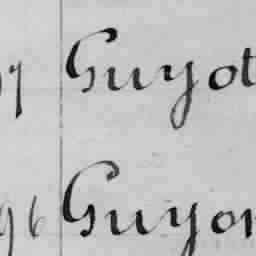 97 Guyot
96 Guyon